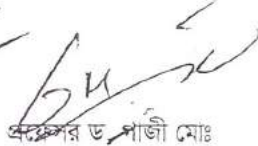 প্রফেসর ড. গাজী মোঃ